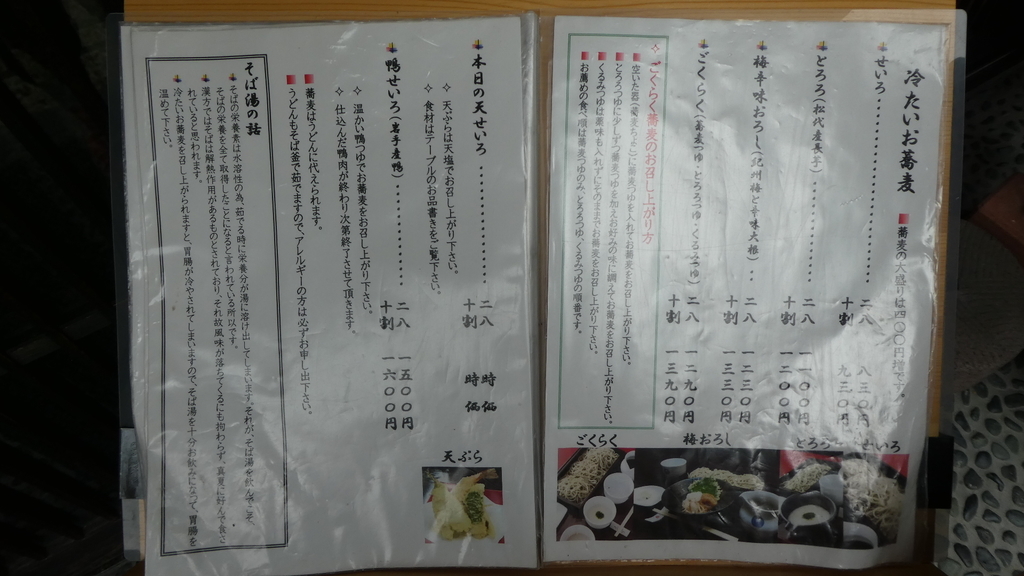 冷たいお蕎麦
■蕎麦の大盛りは四〇〇円増です。
せいろ
二八 八三〇円
十割 九三〇円
とろろ(松代産長芋)
二八 一一〇〇円
十割 一二〇〇円
梅辛味おろし(紀州梅と辛味大根)
二八 一二三〇円
十割 一三三〇円
ごくらく(蕎麦つゆ・とろろつゆ・くるみつゆ)
二八 一二九〇円
十割 一三九〇円
✧ごくらく蕎麦のお召し上がり方
■空いた器(蕎麦ちょこ)に蕎麦つゆを入れてお蕎麦をお召し上がり下さい。
■とろろつゆに少しずつ蕎麦つゆを加えお好みの味に調えてお蕎麦をお召し上がり下さい。
■くるみつゆは薬味も入れずにそのままでお蕎麦をお召し上がり下さい。
■お薦めの食べ順は蕎麦つゆのみ、とろろつゆ、くるみつゆの順番です。
ごくらく
梅おろし
とろろ
せいろ
本日の天せいろ
二八 時価
十割 時価
✧天ぷらは天塩でお召し上がり下さい。
✧食材はテーブルのお品書きをご覧下さい。
鴨せいろ(岩手産鴨)
二八 一五〇〇円
十割 一六〇〇円
✧温かい鴨つゆでお蕎麦をお召し上がり下さい。
✧仕込んだ鴨肉が終わり次第終了させて頂きます。
■蕎麦はうどんに代えられます。
■うどんもそば釜で茹でますので、アレルギーの方は必ずお申し出下さい。
天ぷら
そば湯の話
そばの栄養素は水溶性の為、茹でる時に栄養分が湯に溶け出してしまいます。それが、そば湯を飲んでこそ、
そばの栄養を全て取得したことになると言われている所以です。
漢方ではそばは解熱作用があるものとされており、それ故風味が落ちてくるにも拘わらず、真夏に好んで食さ
れていると思われます。
冷たいお蕎麦を召し上がられますと、胃腸が冷やされてしまいますので、そば湯を十分お飲みになって、胃腸を
温めて下さい。